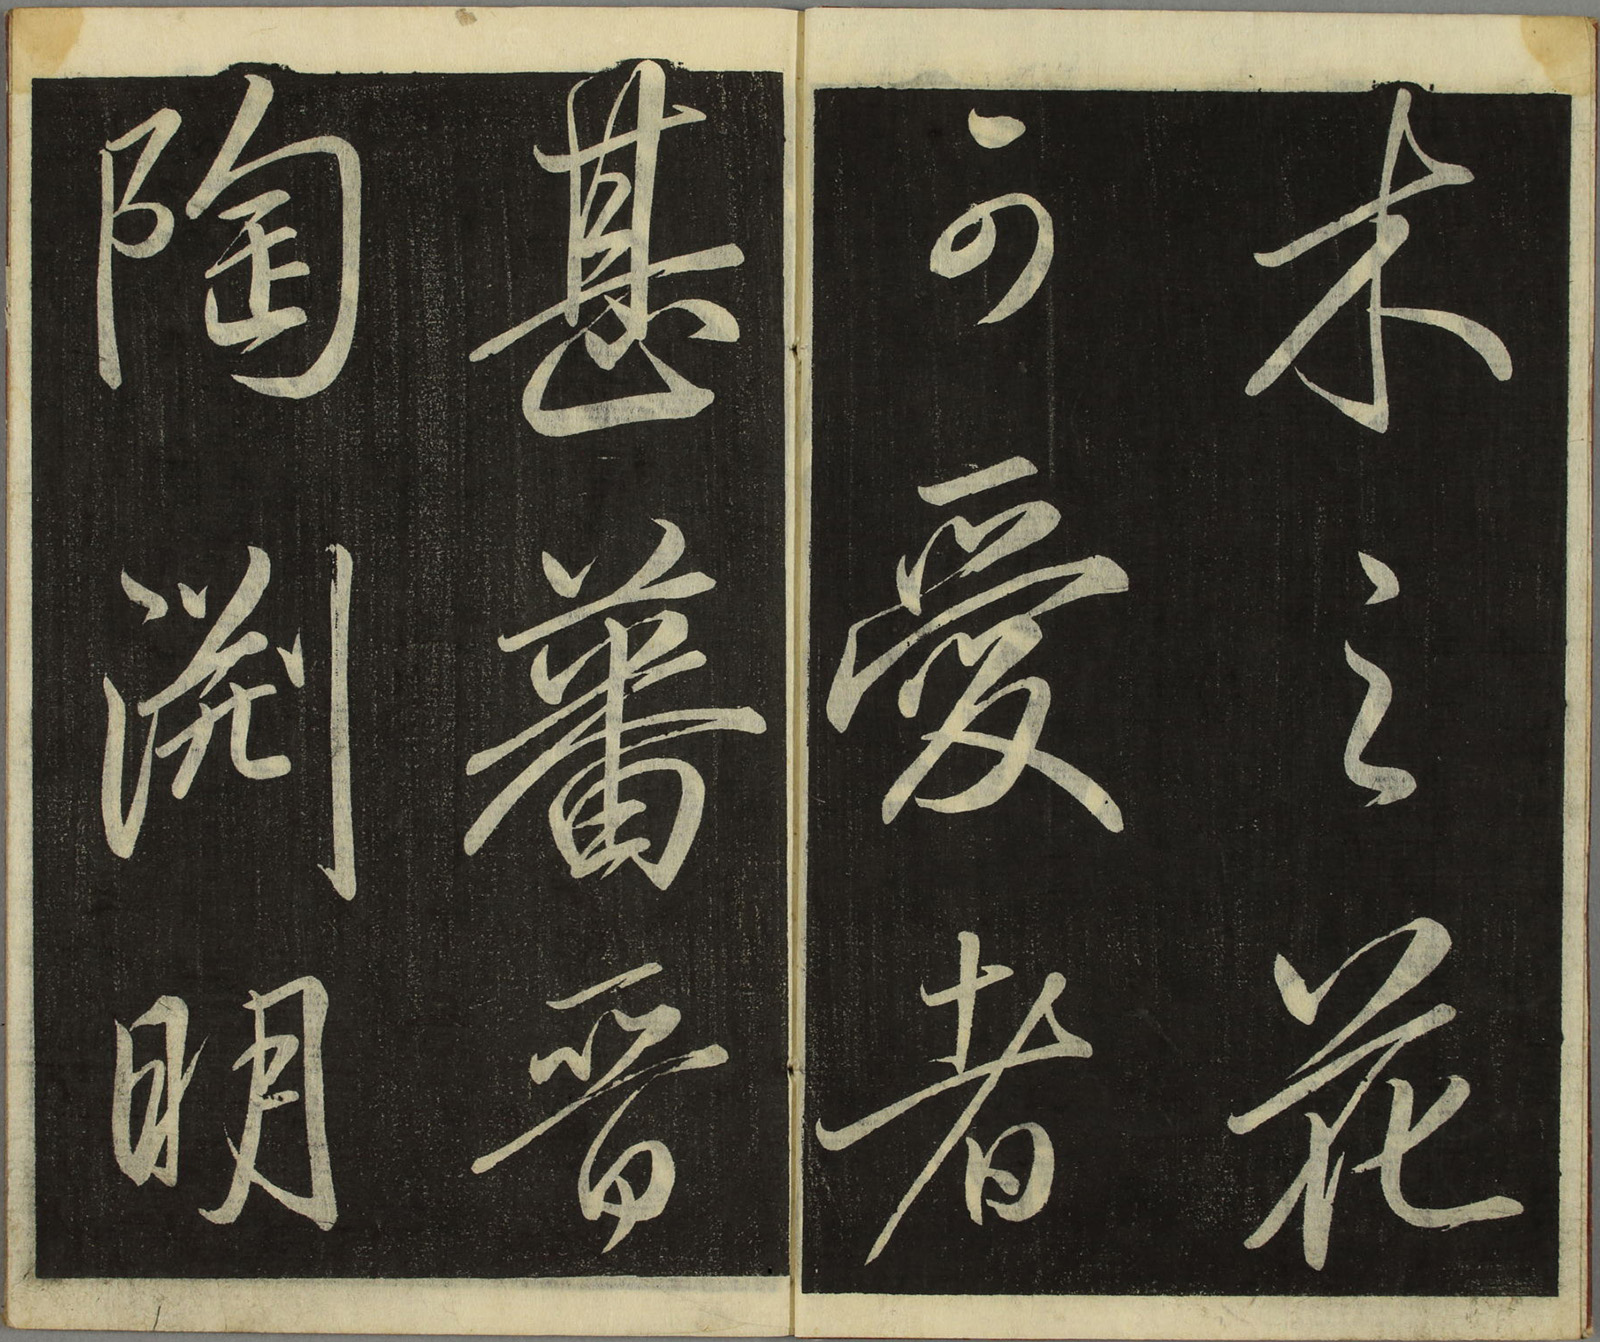 木之花
可愛者
甚蕃晉
陶渕明